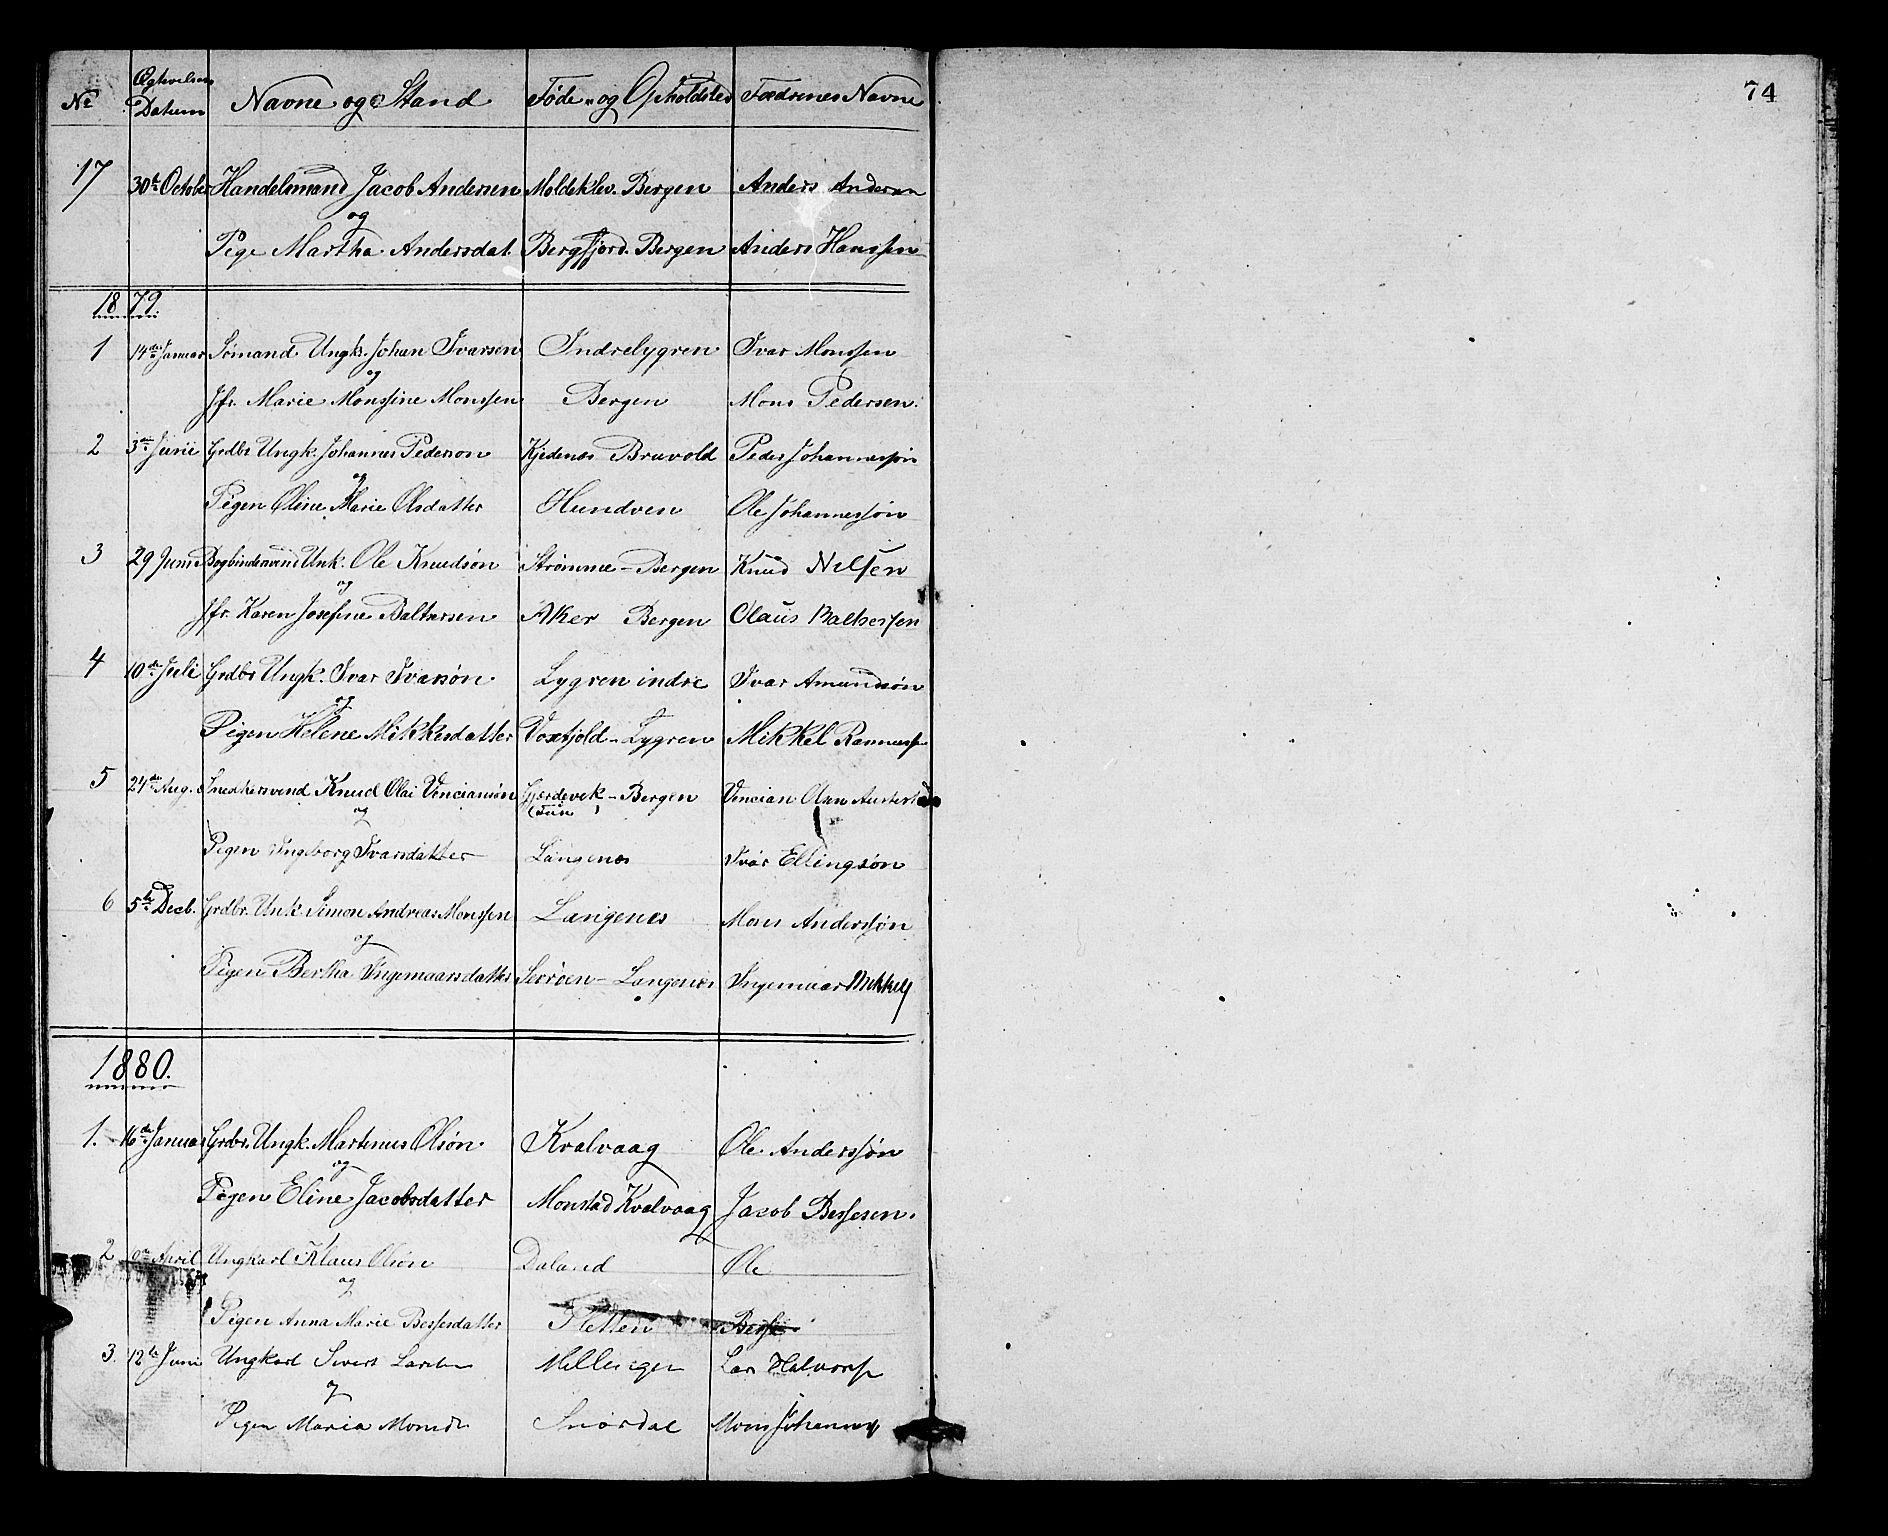 74
No Datum Navne og Stand Føde- og Opholdsted Fædrenes Navne
17 30te October Handelsmand Jacob Andersen Moldeklev. Bergen Anders Andersen
og
Pige Martha Andersdat. Bergfjord. Bergen Anders Hanssen
1879.
1 14de Januar Sömand Ungk. Johan Ivarsen Indrelygren Ivar Monssen
og
Jfr. Marie Monssine Monssen Bergen Mons Pedersen.
2 3die Juni Grdbr. Ungk. Johannes Pederson Kjedenes Bruvold Peder Johannessøn
og
Pigen Oline Marie Olsdatter Hundven Ole Johannessøn
3 29 Juni Bogbindersvend Unk. Ole Knudsøn Strømme - Bergen Knud Nilsen
og
Jfr. Karen Josefine Baltsersen Aker Bergen Olaus Baltsersen
4 10de Juli Grdbr Ungk. Ivar Ivarsøn. Lygren indre Ivar Amundsøn
og
Pigen Helene Mikkelsdatter - Lygren Mikkel
5 24de Aug. Snedkersvend Knud Olai Vencianson Gjerdevik - Bergen Vencian
og
Pigen Ingeborg Ivarsdatter Langenes Ivar Ellingsøn
6 5te Decb. Grdbr. Unk Simon Andreas Monssen Langenes Mons Anderssøn
og
Pigen Bertha Ingemaarsdatter - Langenes Ingemaar Mikkels
1880.
1. 16de Januar Grdbr. Ungk. Martinus Olsøn. Kvalvaag Ole Anderssøn
og
Pigen Eline Jacobsdatter Monstad Kvalvaag Jacob Bessesen.
2 April Ungkarl Klaus Olsøn Daland Ole
og
Pigen Anna Marie Bessesdatter Fletten Besse
3. 12te Juni Ungkarl Sivert Larsen Mellingen Lars Halvors
og
Pigen Maria Monsdr Mons Johannes